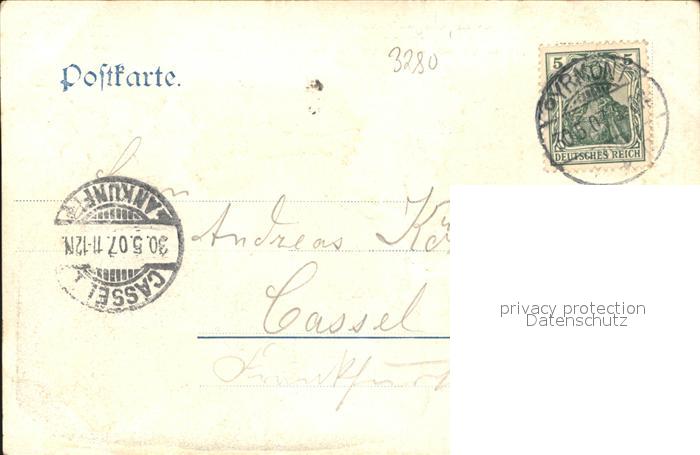 3280
Postkarte.
5 5
PYRMONT
30.5.07
DEUTSCHES REICH
Herrn
Andreas
Cassel
Frankfurt
ANKUNFT
30.5.07.11-12N.
CASSEL
privacy protection
Datenschutz